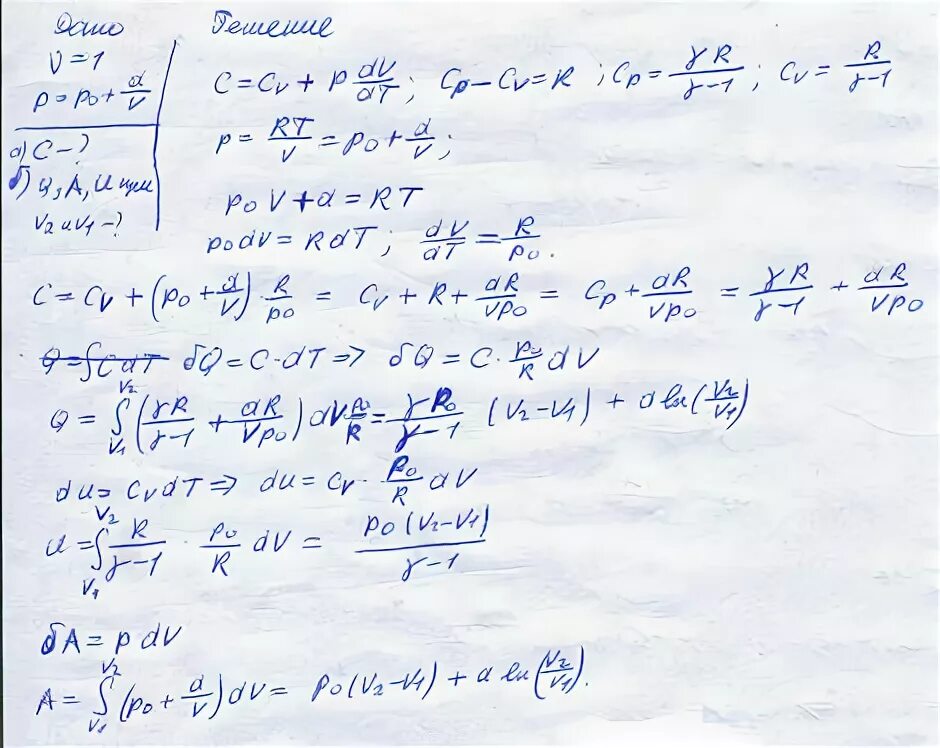 Дано Решение
ν=1
p=p₀+α/V
а) C-?
б) Q, A, U при
V₂ и V₁-?
C=Cv + p dV/dT; Cp-Cv=R; Cp=γR/(γ-1); Cv=R/(γ-1)
p=RT/V=p₀+α/V;
p₀V+α=RT
p₀dV=RdT; dV/dT=R/p₀.
C=Cv+(p₀+α/V)·R/p₀ = Cv+R+αR/(Vp₀) = Cp+αR/(Vp₀) = γR/(γ-1)+αR/(Vp₀)
Q=∫CdT δQ=C·dT⇒ δQ=C·p₀/R dV
Q=∫_{V₁}^{V₂}(γR/(γ-1)+αR/(Vp₀))dV p₀/R=γp₀/(γ-1) (V₂-V₁)+α ln(V₂/V₁)
dU=CvdT⇒ dU=Cv·p₀/R dV
U=∫_{V₁}^{V₂} R/(γ-1)·p₀/R dV = p₀(V₂-V₁)/(γ-1)
δA=p dV
A=∫_{V₁}^{V₂}(p₀+α/V)dV=p₀(V₂-V₁)+α ln(V₂/V₁).